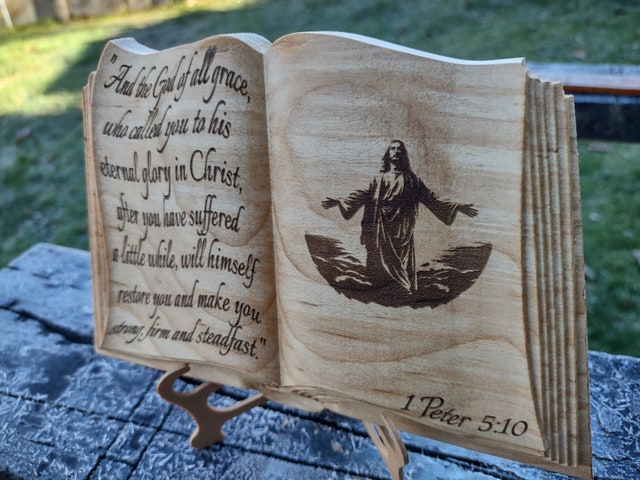 "And the God of all grace,
who called you to his
eternal glory in Christ,
after you have suffered
a little while, will himself
restore you and make you
strong, firm and steadfast."
1 Peter 5:10